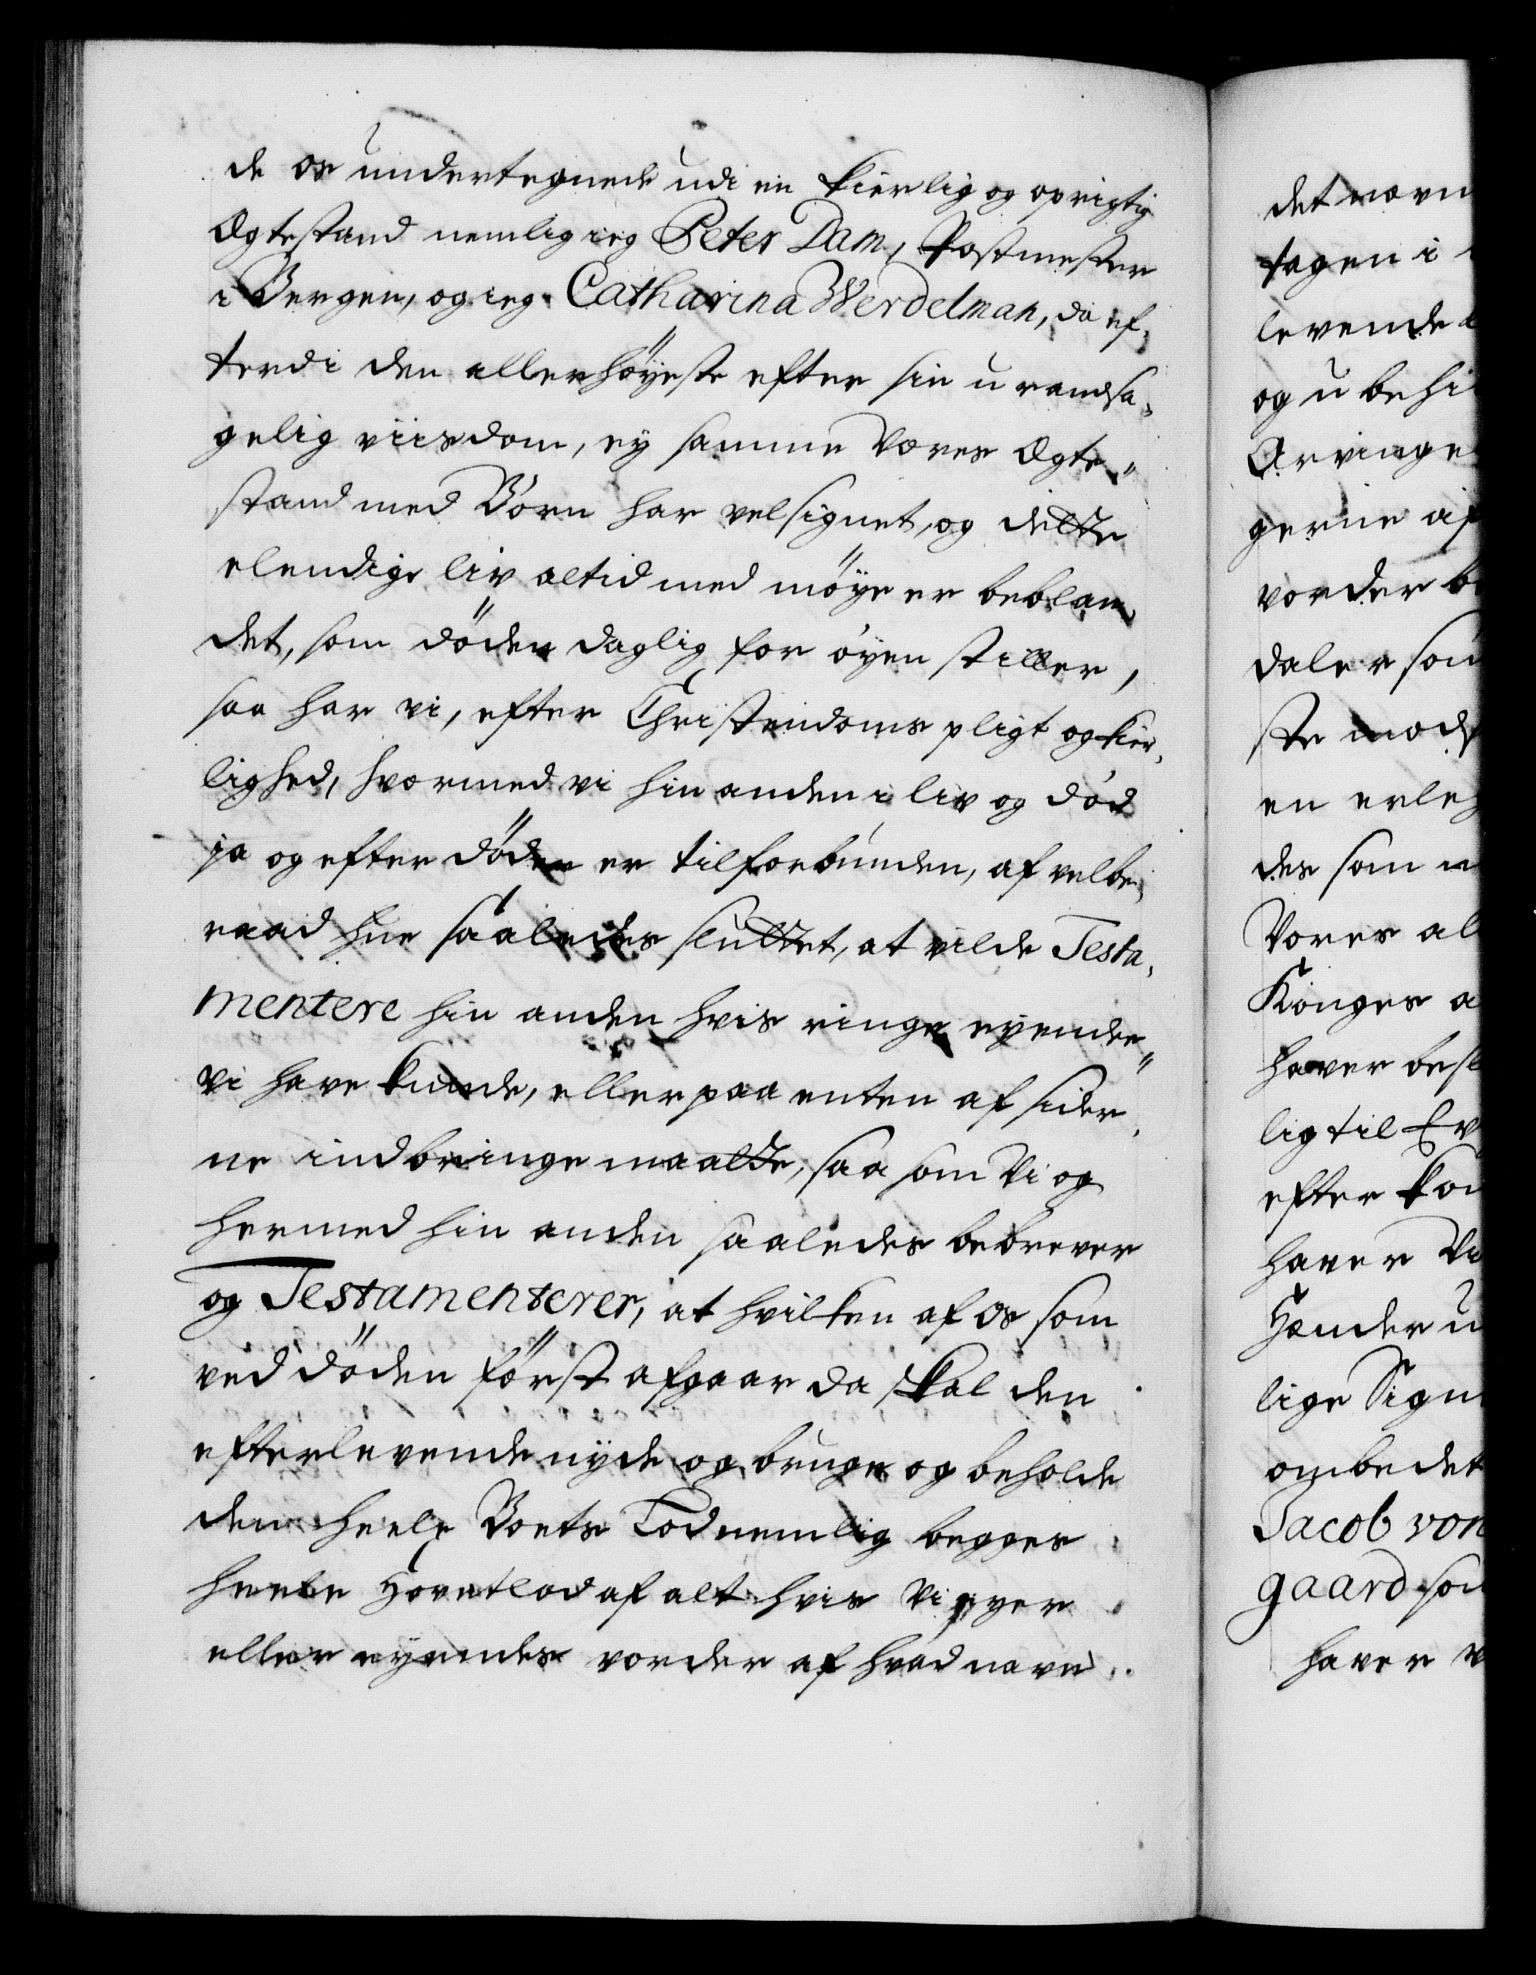 de os undertegnede udi en kierlig og oprigtig
Ægtestand nemlig ieg Peter Dam, Postmester
i Bergen, og ieg Catharina Werdelman, da ef-
terdi den allerhöyeste efter sin u randsa-
gelig viisdom, ey samme Vores Ægte-
stand med Börn har velsignet, og dette
elendige liv altid med möye er beblan-
det, som döden daglig for öyen stiller,
saa har vi, efter Christendoms pligt og kier-
lighed, hvormed vi hin anden i liv og död
ja og efter döden er tilforbunden, af velbe-
raad hue saaledes sluttet, at vilde Testa-
mentere hin anden hvis ringe eyendee
vi have kunde, eller paa enten af sider-
ne indbringe maatte, saa som Vi og
hermed hin anden saaledes bebrever
og Testamenterer, at hvilken af os som
ved döden först afgaar da skal den
efterlevende nyde og bruge og beholde
den heele Boets Lod nemlig begges
heele Hovetlod af alt hvis Vi eyer
eller eyendes vorder af hvad navn
det nævn
tagen i
levende
og u behi
Arvinge
gerne af
vorder be
daler som
ste mods
en erleg
des som
Vores al
Konges a
haver besl
lig til Ev
efter kon
haver Vi
Hænder u
lige Sign
ombedet
Jacob von
gaard som
haver v